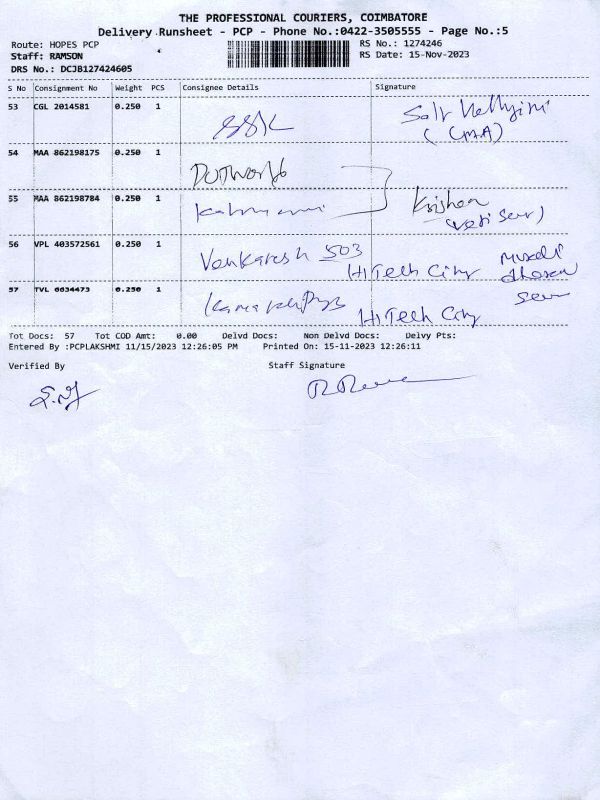 THE PROFESSIONAL COURIERS, COIMBATORE
Delivery Runsheet - PCP - Phone No.:0422-3505555 - Page No.:5
Route: HOPES PCP RS No.: 1274246
Staff: RAMSON RS Date: 15-Nov-2023
DRS No.: DCJB127424605
S No Consignment No Weight PCS Consignee Details Signature
53 CGL 2014581 0.250 1 SSK
54 MAA 862198175 0.250 1 DotWorld
55 MAA 862198784 0.250 1 Krishna
56 VPL 403572561 0.250 1 Venkatesh 503 Hi Tech City
57 TVL 6634473 0.250 1 Hi Tech City
Tot Docs: 57 Tot COD Amt: 0.00 Delvd Docs: Non Delvd Docs: Delvy Pts:
Entered By :PCPLAKSHMI 11/15/2023 12:26:05 PM Printed On: 15-11-2023 12:26:11
Verified By Staff Signature